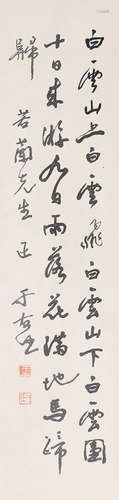 白雲山上白雲飛白雲山下白雲圍
十日來游九日雨落花滿地馬蹄
歸 若蘭先生正 于右任